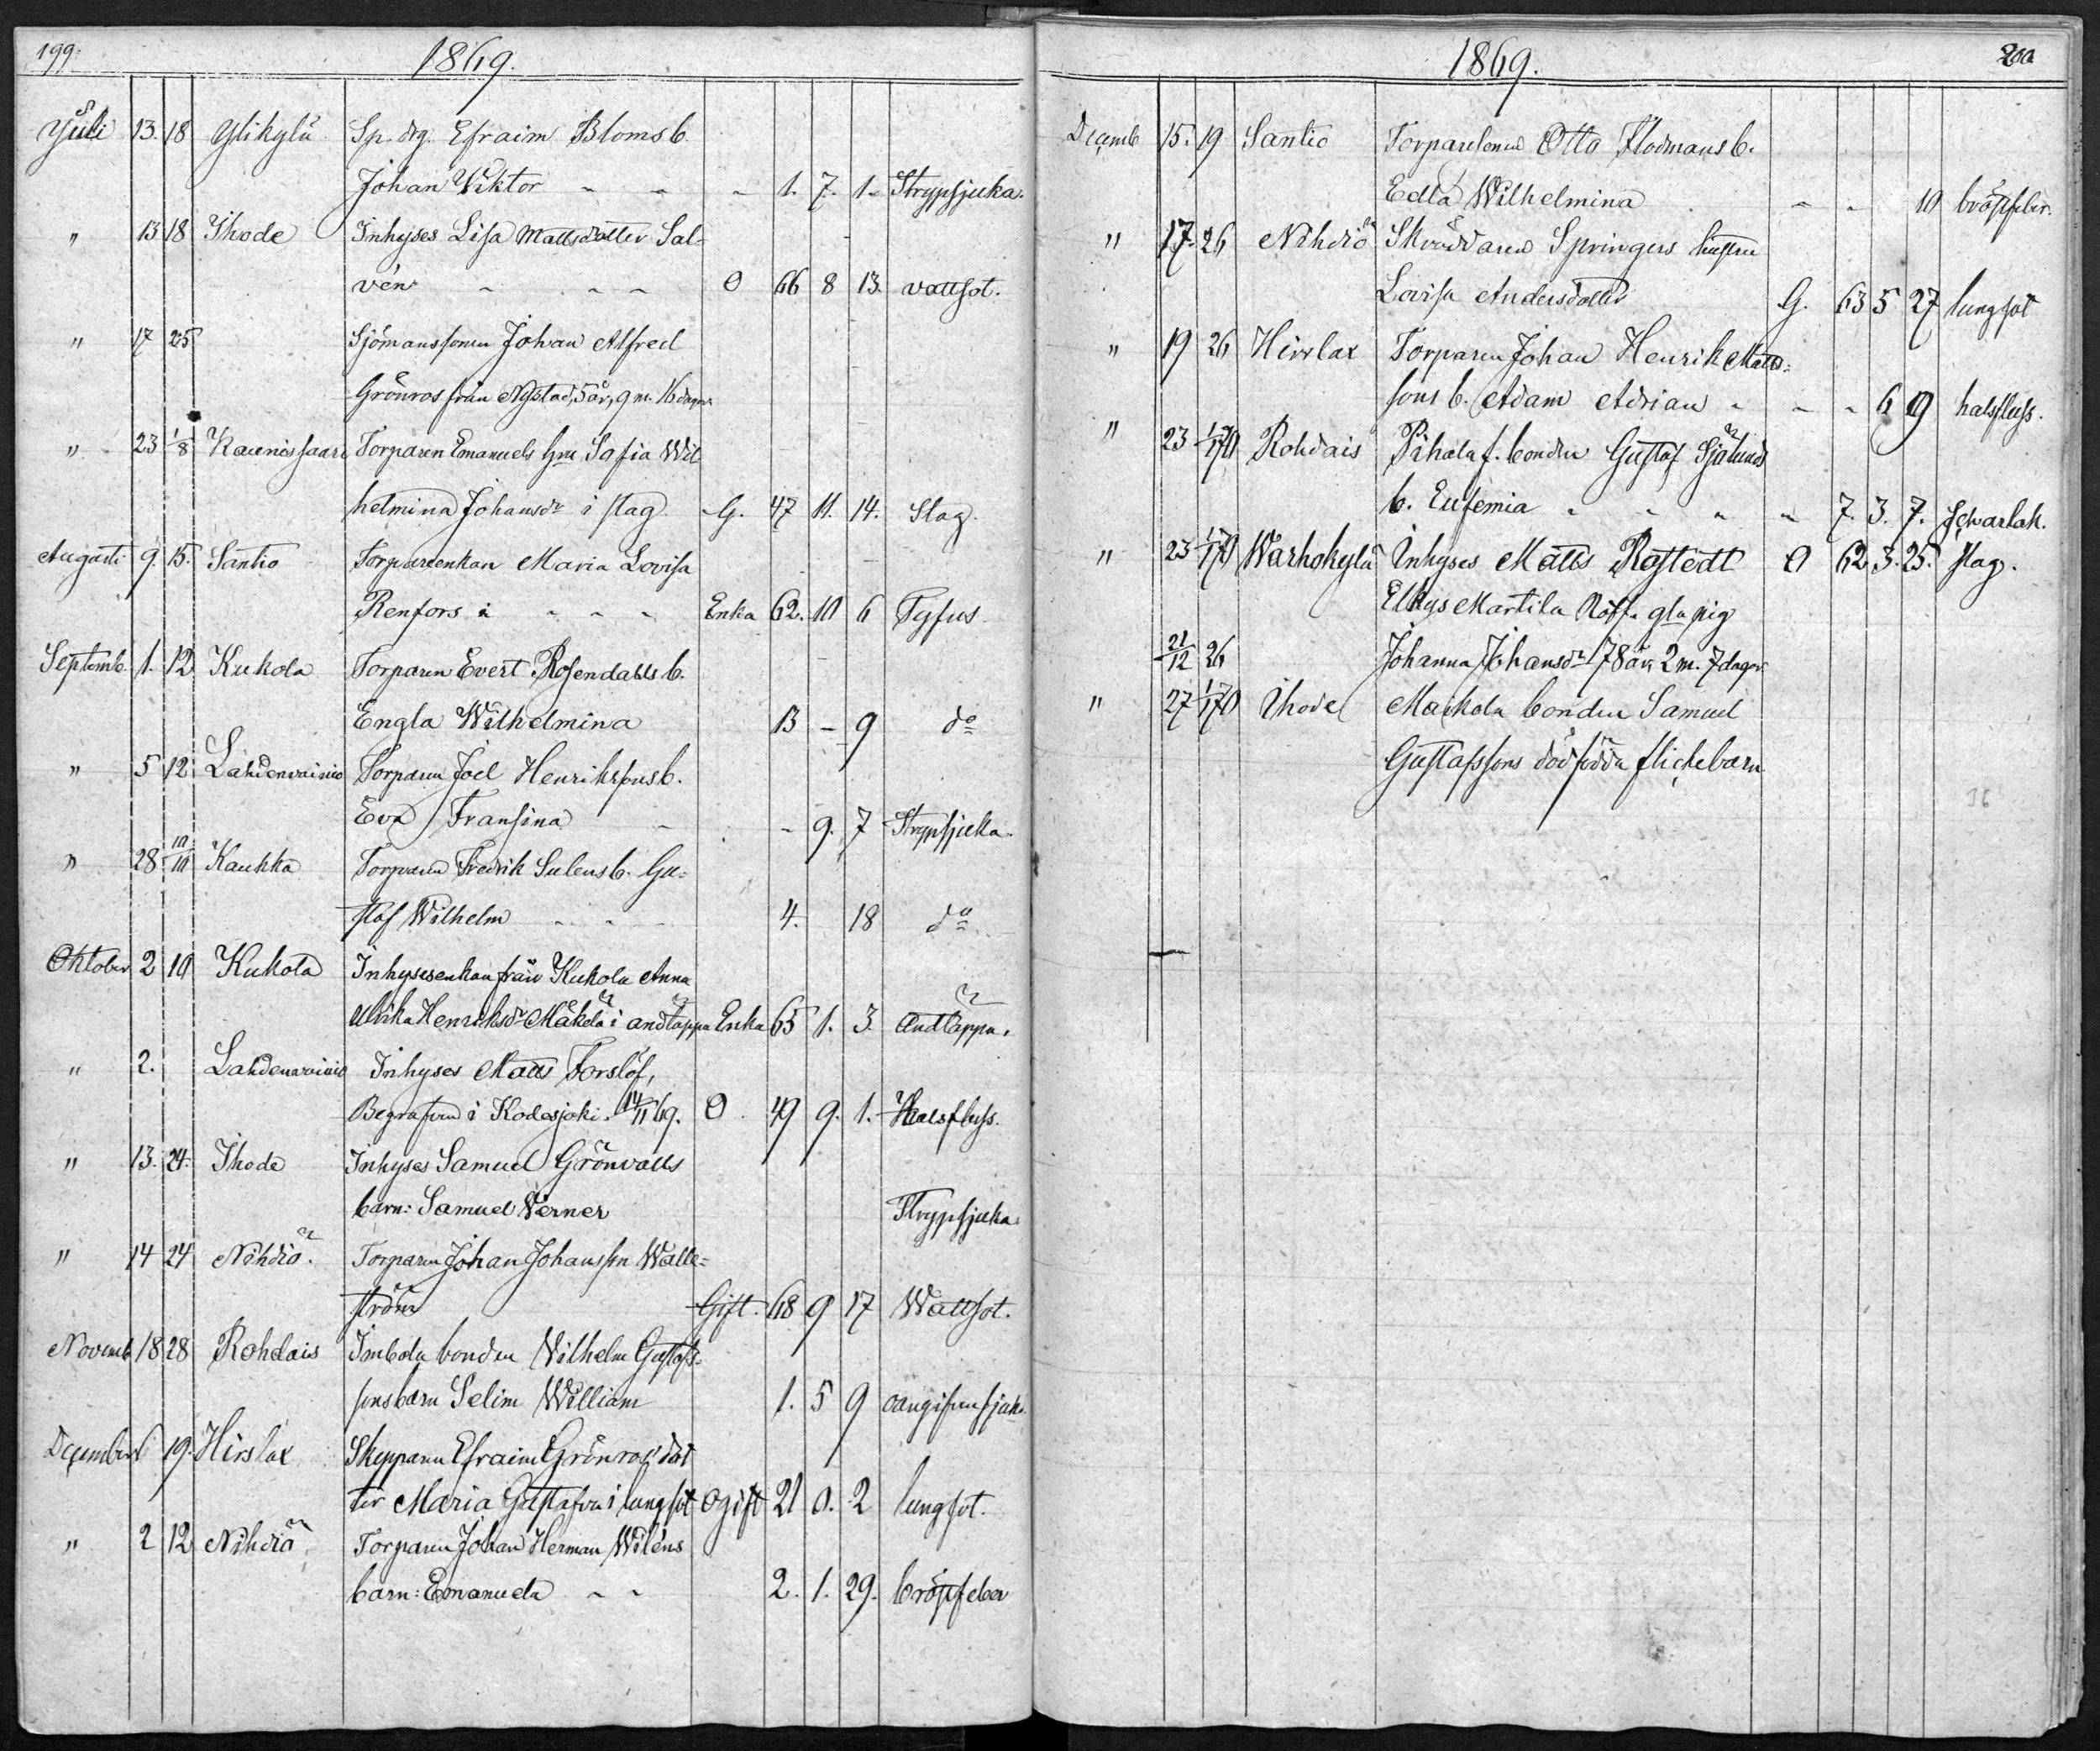 199.
1869.
Juli 13. 18 Ylikylä Sp. drg. Efraim Bloms b.
Johan Wiktor - - - 1. 7. 1. Strypsjuka.
" 13 18 Ihode Inhyses Lisa Mattsdotter Sal-
vén - - - O 66 8 13. vattsot.
" 17 25 Sjömanssonen Johan Alfred
Grönros från Nystad, 5 år, 9 m. 16 dagar
" 23 1/8 Kaunissaari Torparen Emanuels hru Safia Wil
helmina Johansdr i slag G. 47 11. 14. Slag.
Augusti 9. 15. Santio Torpareenkan Maria Lovisa
Renfors i - - - Enka 62. 10 6 Tyfus.
Septemb. 1. 12 Kukola Torparen Evert Rosendahls b.
Engla Wilhelmina 13 - 9 do
" 5 12 Lahdenvainio Torparen Joel Henrikssons b.
Eva Fransina - - 9. 7 Strypsjuka.
" 28 10/10 Kaukka Torparen Fredrik Sulens b. Gu-
staf Wilhelm - - - 4. 18 do
Oktober 2 10 Kukola Inhysesenkan från Kukola Anna
Ulrika Henriksdr Mäkelä i andtäppa Enka 65 1. 3. Andtäppa.
" 2. Lahdenvainio Inhyses Matts Forslöf,
Begrafven i Kodesjoki. 14/11 69. O. 49 9. 1. Halsfluss.
" 13. 24. Ihode Inhyses Samuel Grönvalls
barn: Samuel Verner Strypsjuka.
" 14 24 Nihdiö. Torparen Johan Johansson Walle-
ström Gift. 68 9 17 Wattsot.
Novemb. 18 28 Rohdais Imbola bonden Wilhelm Gustafs-
sons barn Selim William 1. 5 9 oangifven sjukd.
December 6 19. Hirslax Skepparen Efraim Grönros' dot
ter Maria Gustafva i lungsot Ogift 21 0. 2 lungsot.
" 2 12 Nihdiö Torparen Johan Herman Wiléns
barn: Emanuela - - 2. 1. 29. bröstfeber
1869. 200
Decemb 15. 19 Santio Torparesonen Otto Flodmans b.
Edla Wilhelmina - - 10 bröstfeber.
" 17. 26 Nihdiö Skräddaren Springers hustru
Lovisa Andersdotter G. 63 5 27 lungsot
" 19 26 Hirslax Torparen Johan Henrik Matts-
sons b. Adam Adrian - - - 6 19 halsfluss.
" 23 1/1 70 Rohdais Pihola f. bonden Gustaf Sjölunds
b. Eufemia - - - - 7. 3. 7. Scharlak.
" 23 1/1 70 Warhokylä Inhyses Matts Rostedt O 62. 3. 25. slag.
Elkys Martila gla pig
21/12 26 Johanna Johansdr 78 år 2 m. 7 dagar
" 27 1/1 70 Ihode Maikola bonden Samuel
Gustafssons dödfödda flickebarn